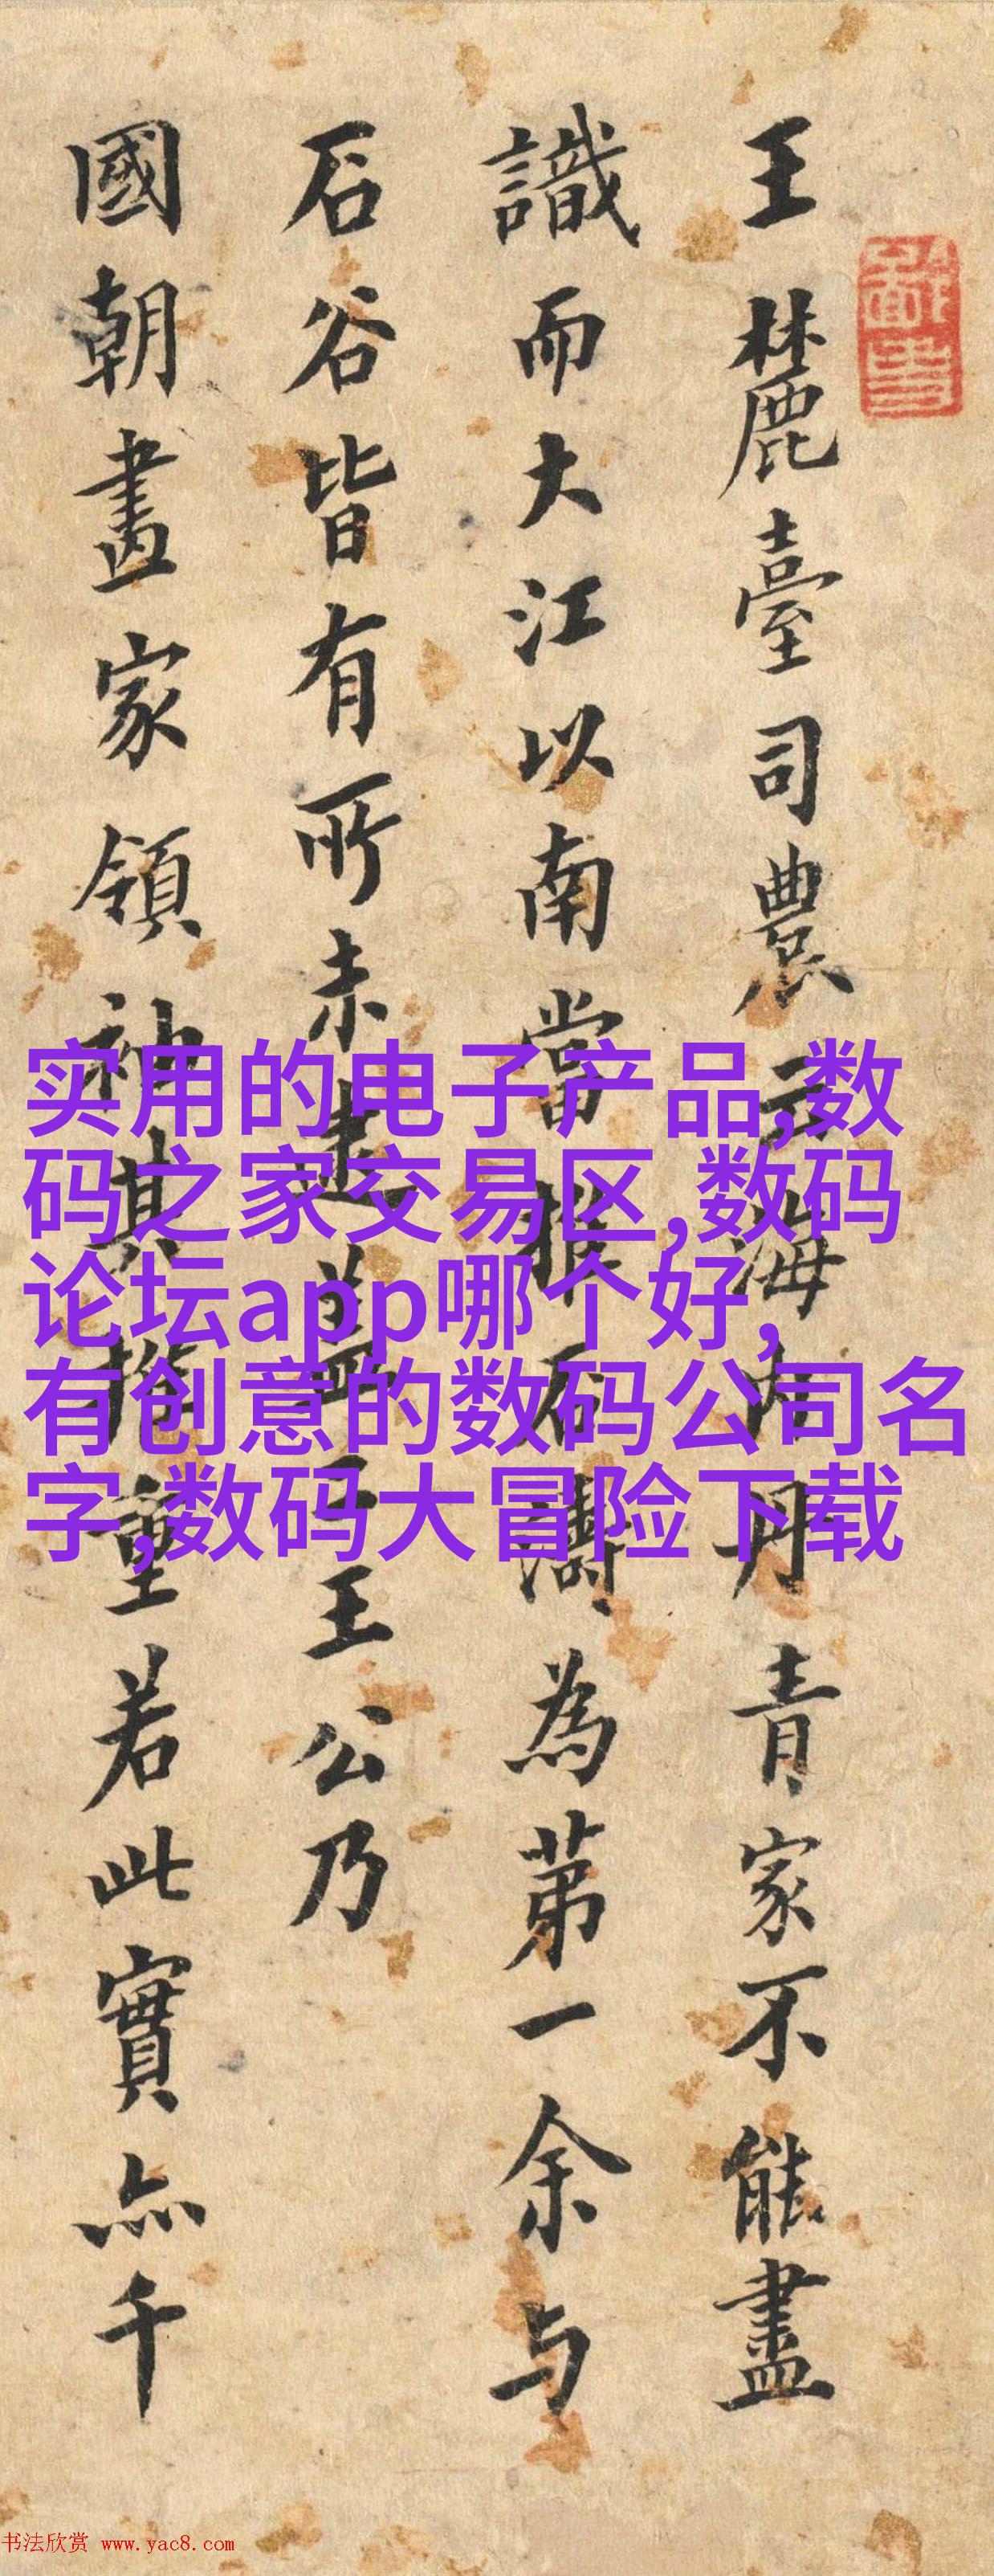 王麓臺司農云海内丹青家不能盡
識而大江以南當推石濤為第一余与
石谷皆有所未逮蓋王公乃
國朝畫家領袖其推重若此實亦千
实用的电子产品,数
码之家交易区,数码
论坛app哪个好,
有创意的数码公司名
字,数码大冒险下载
书法欣赏 www.yac8.com